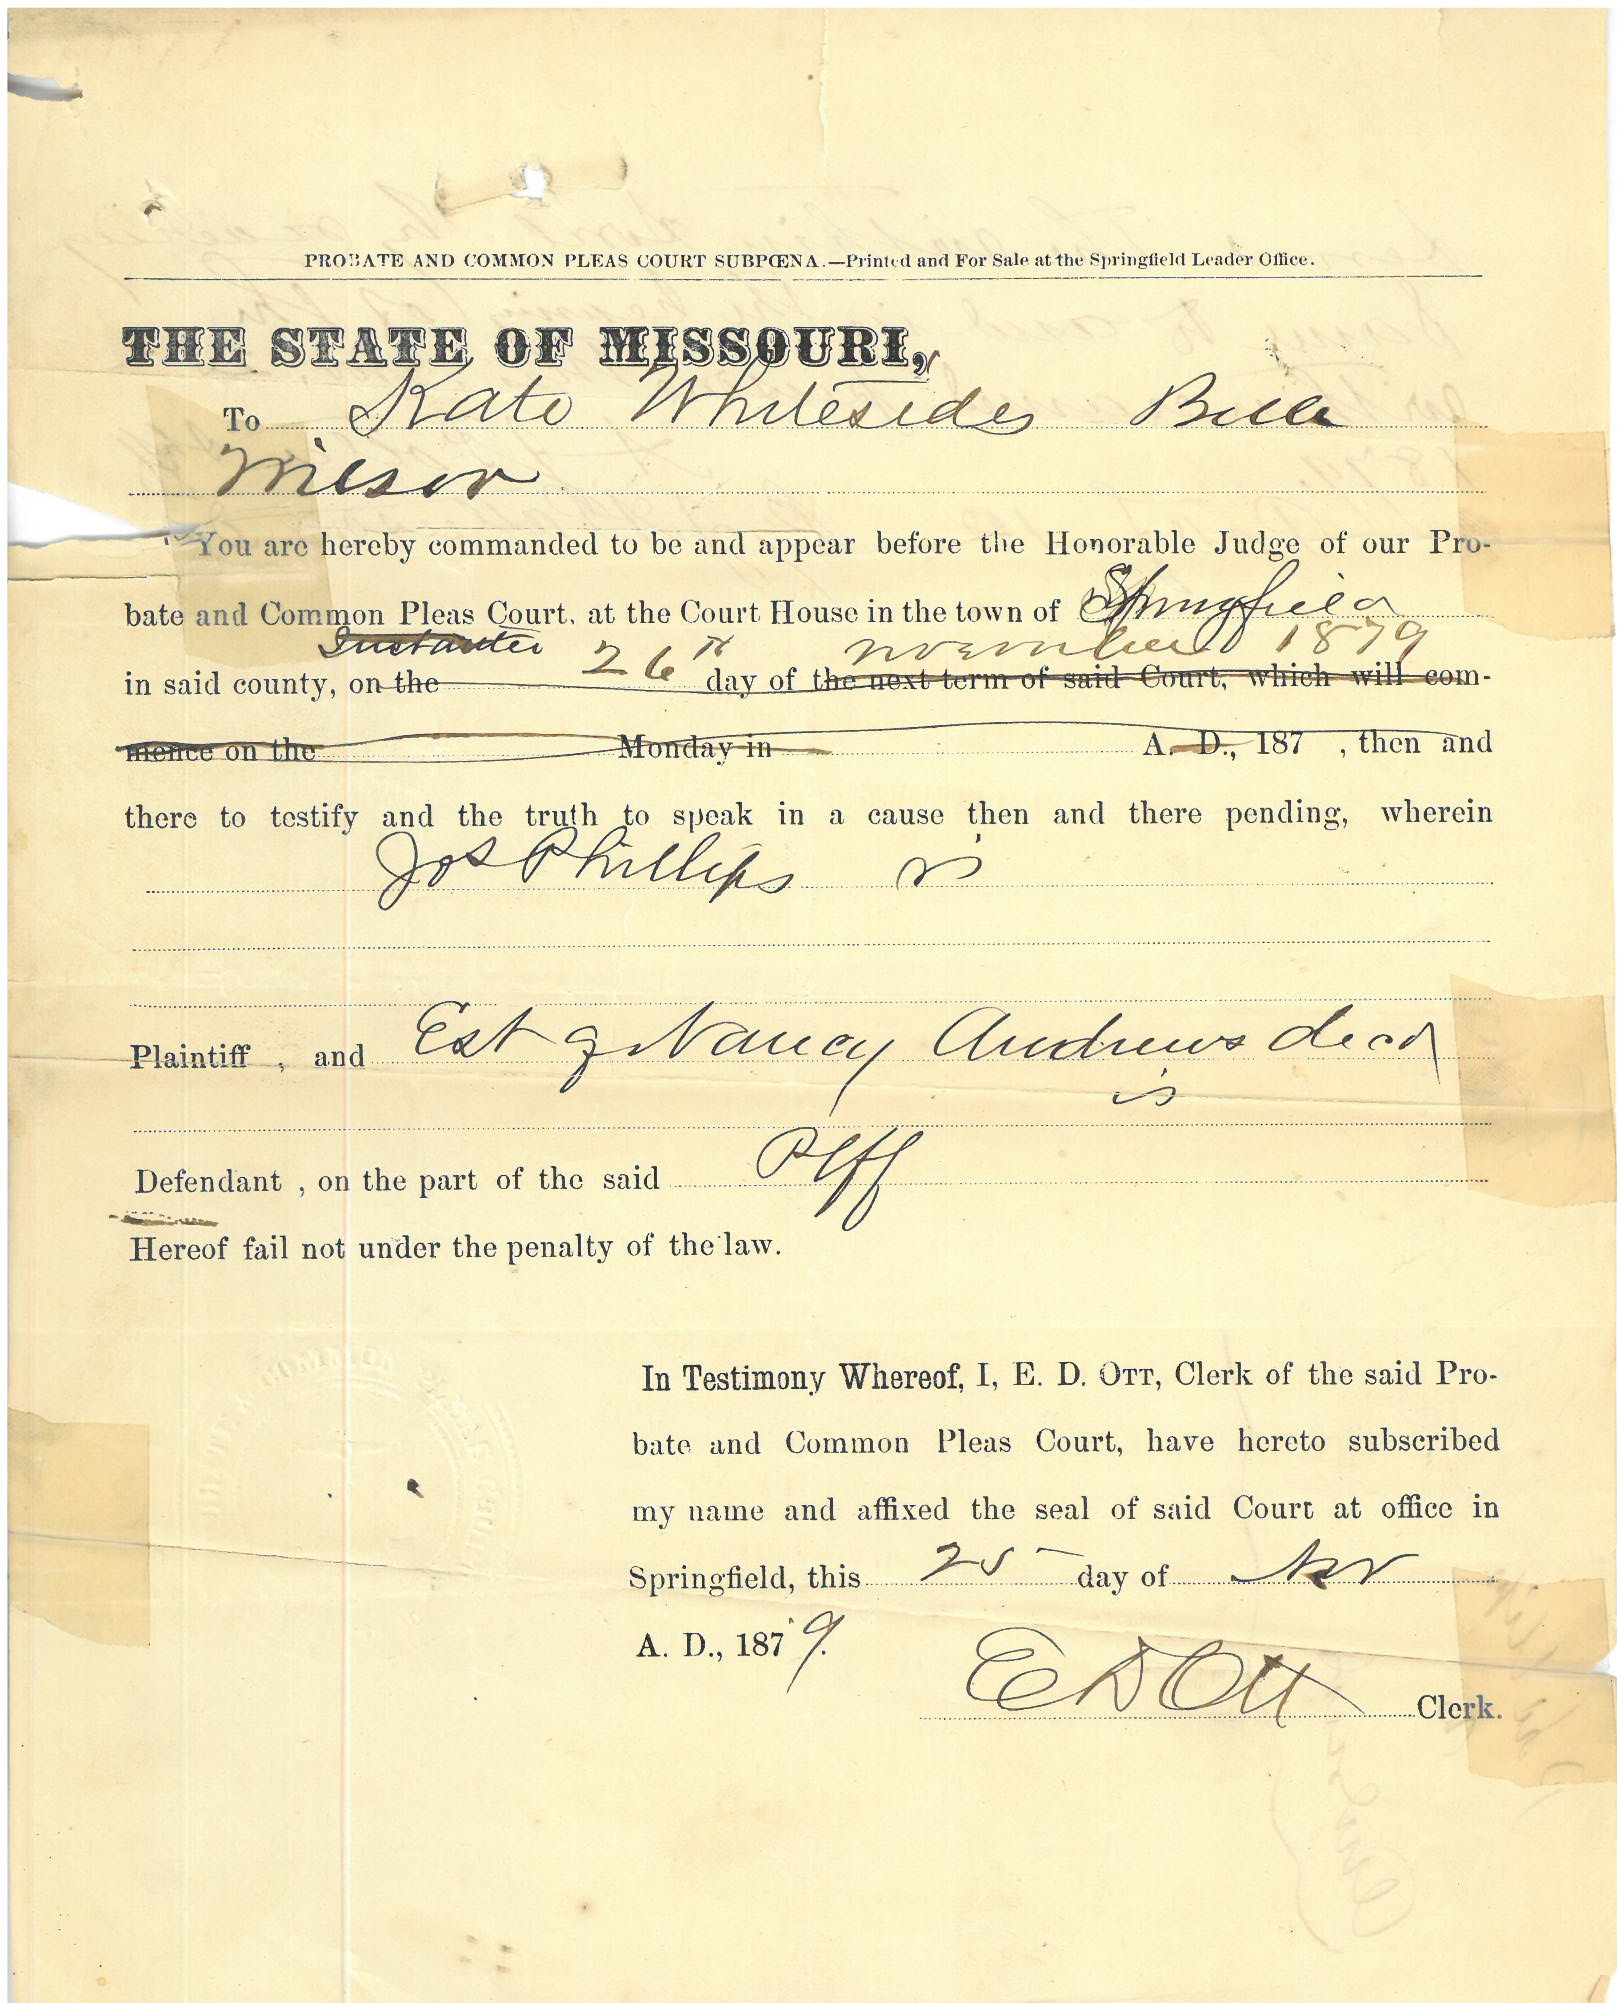 PROBATE AND COMMON PLEAS COURT SUBPŒNA.—Printed and For Sale at the Springfield Leader Office.
THE STATE OF MISSOURI,
To Kate Whitesides Belle
Wilson
You are hereby commanded to be and appear before the Honorable Judge of our Pro-
bate and Common Pleas Court, at the Court House in the town of Springfield
Instanter 26th November 1879
in said county, on the day of the next term of said Court, which will com-
mence on the Monday in A. D., 187 , then and
there to testify and the truth to speak in a cause then and there pending, wherein
Jos Phillips is
Plaintiff , and Est of Nancy Andrews decd
is
Defendant , on the part of the said Plff
Hereof fail not under the penalty of the law.
In Testimony Whereof, I, E. D. OTT, Clerk of the said Pro-
bate and Common Pleas Court, have hereto subscribed
my name and affixed the seal of said Court at office in
Springfield, this 25 day of Nov
A. D., 1879.
E D Ott Clerk.